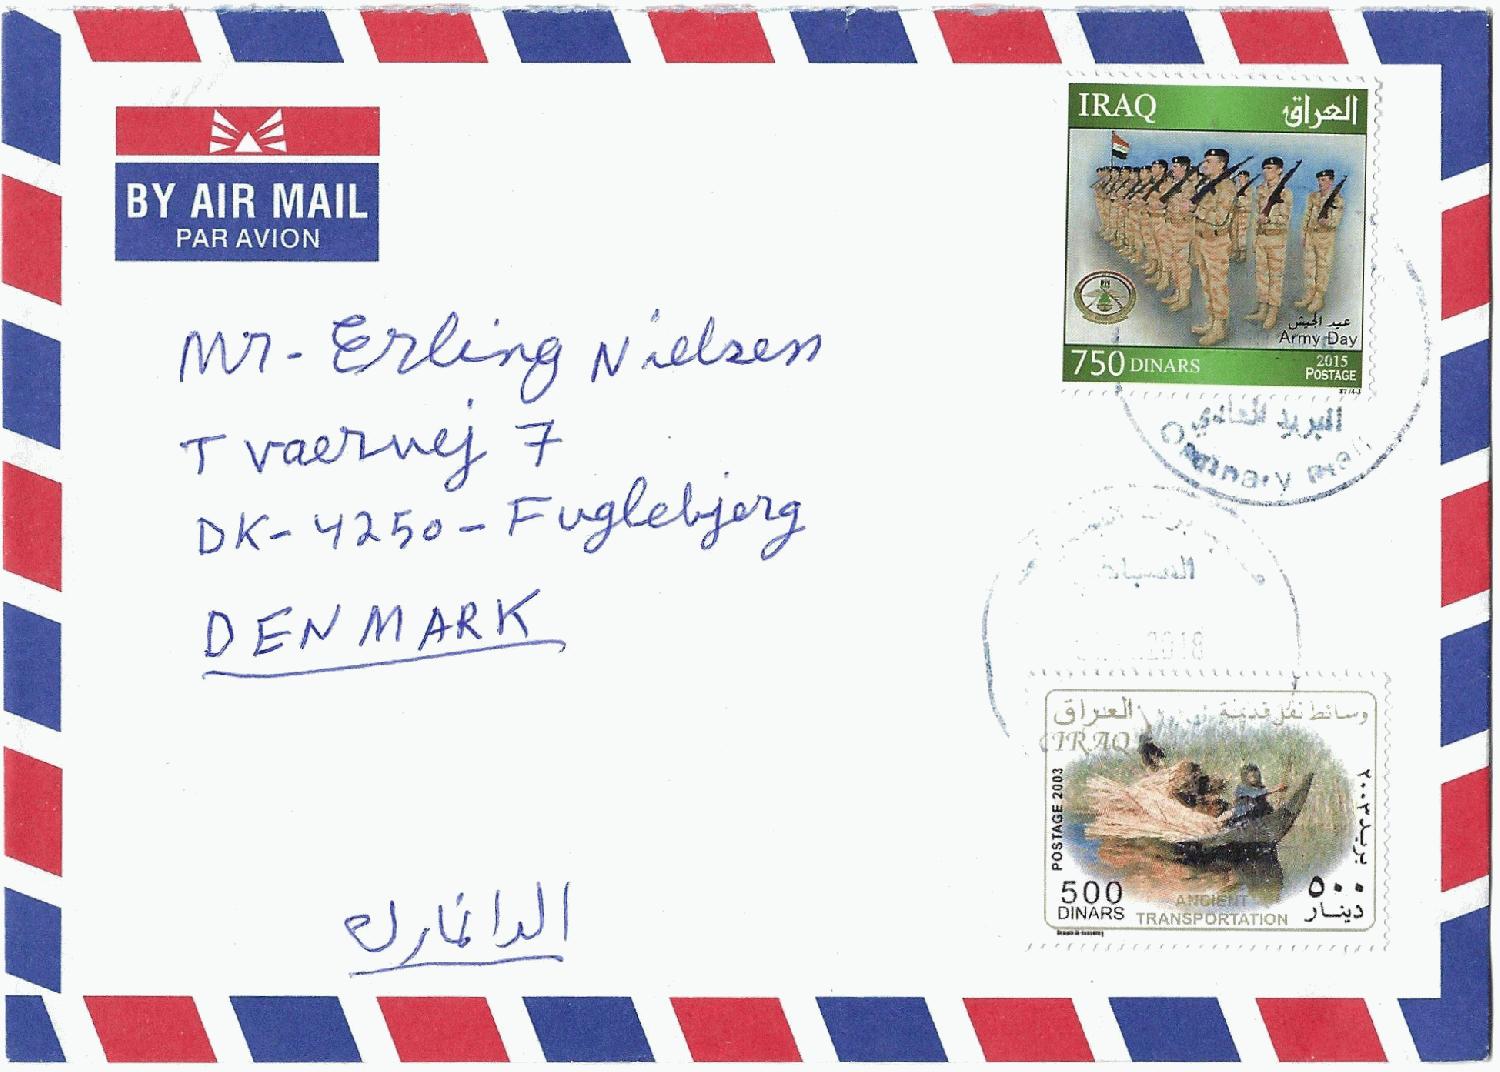 BY AIR MAIL
PAR AVION
IRAQ العراق
عيد الجيش
Army Day
750 DINARS
2015
POSTAGE
البريد العادي
Ordinary mail
Mr- Erling Nielsen
Tvaervej 7
DK-4250-Fuglebjerg
DENMARK
الدانمارك
2018
العراق وسائط نقل قديمة
IRAQ
POSTAGE 2003
بريد ٢٠٠٣
500
DINARS
ANCIENT
TRANSPORTATION
٥٠٠
دينار